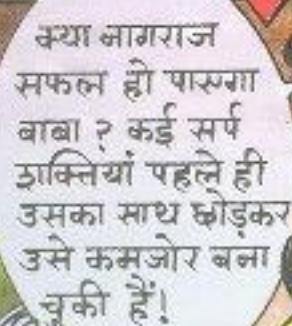 क्या नागराज
सफल हो पाएगा
बाबा ? कई सर्प
शक्तियां पहले ही
उसका साथ छोड़कर
उसे कमजोर बना
चुकी हैं!